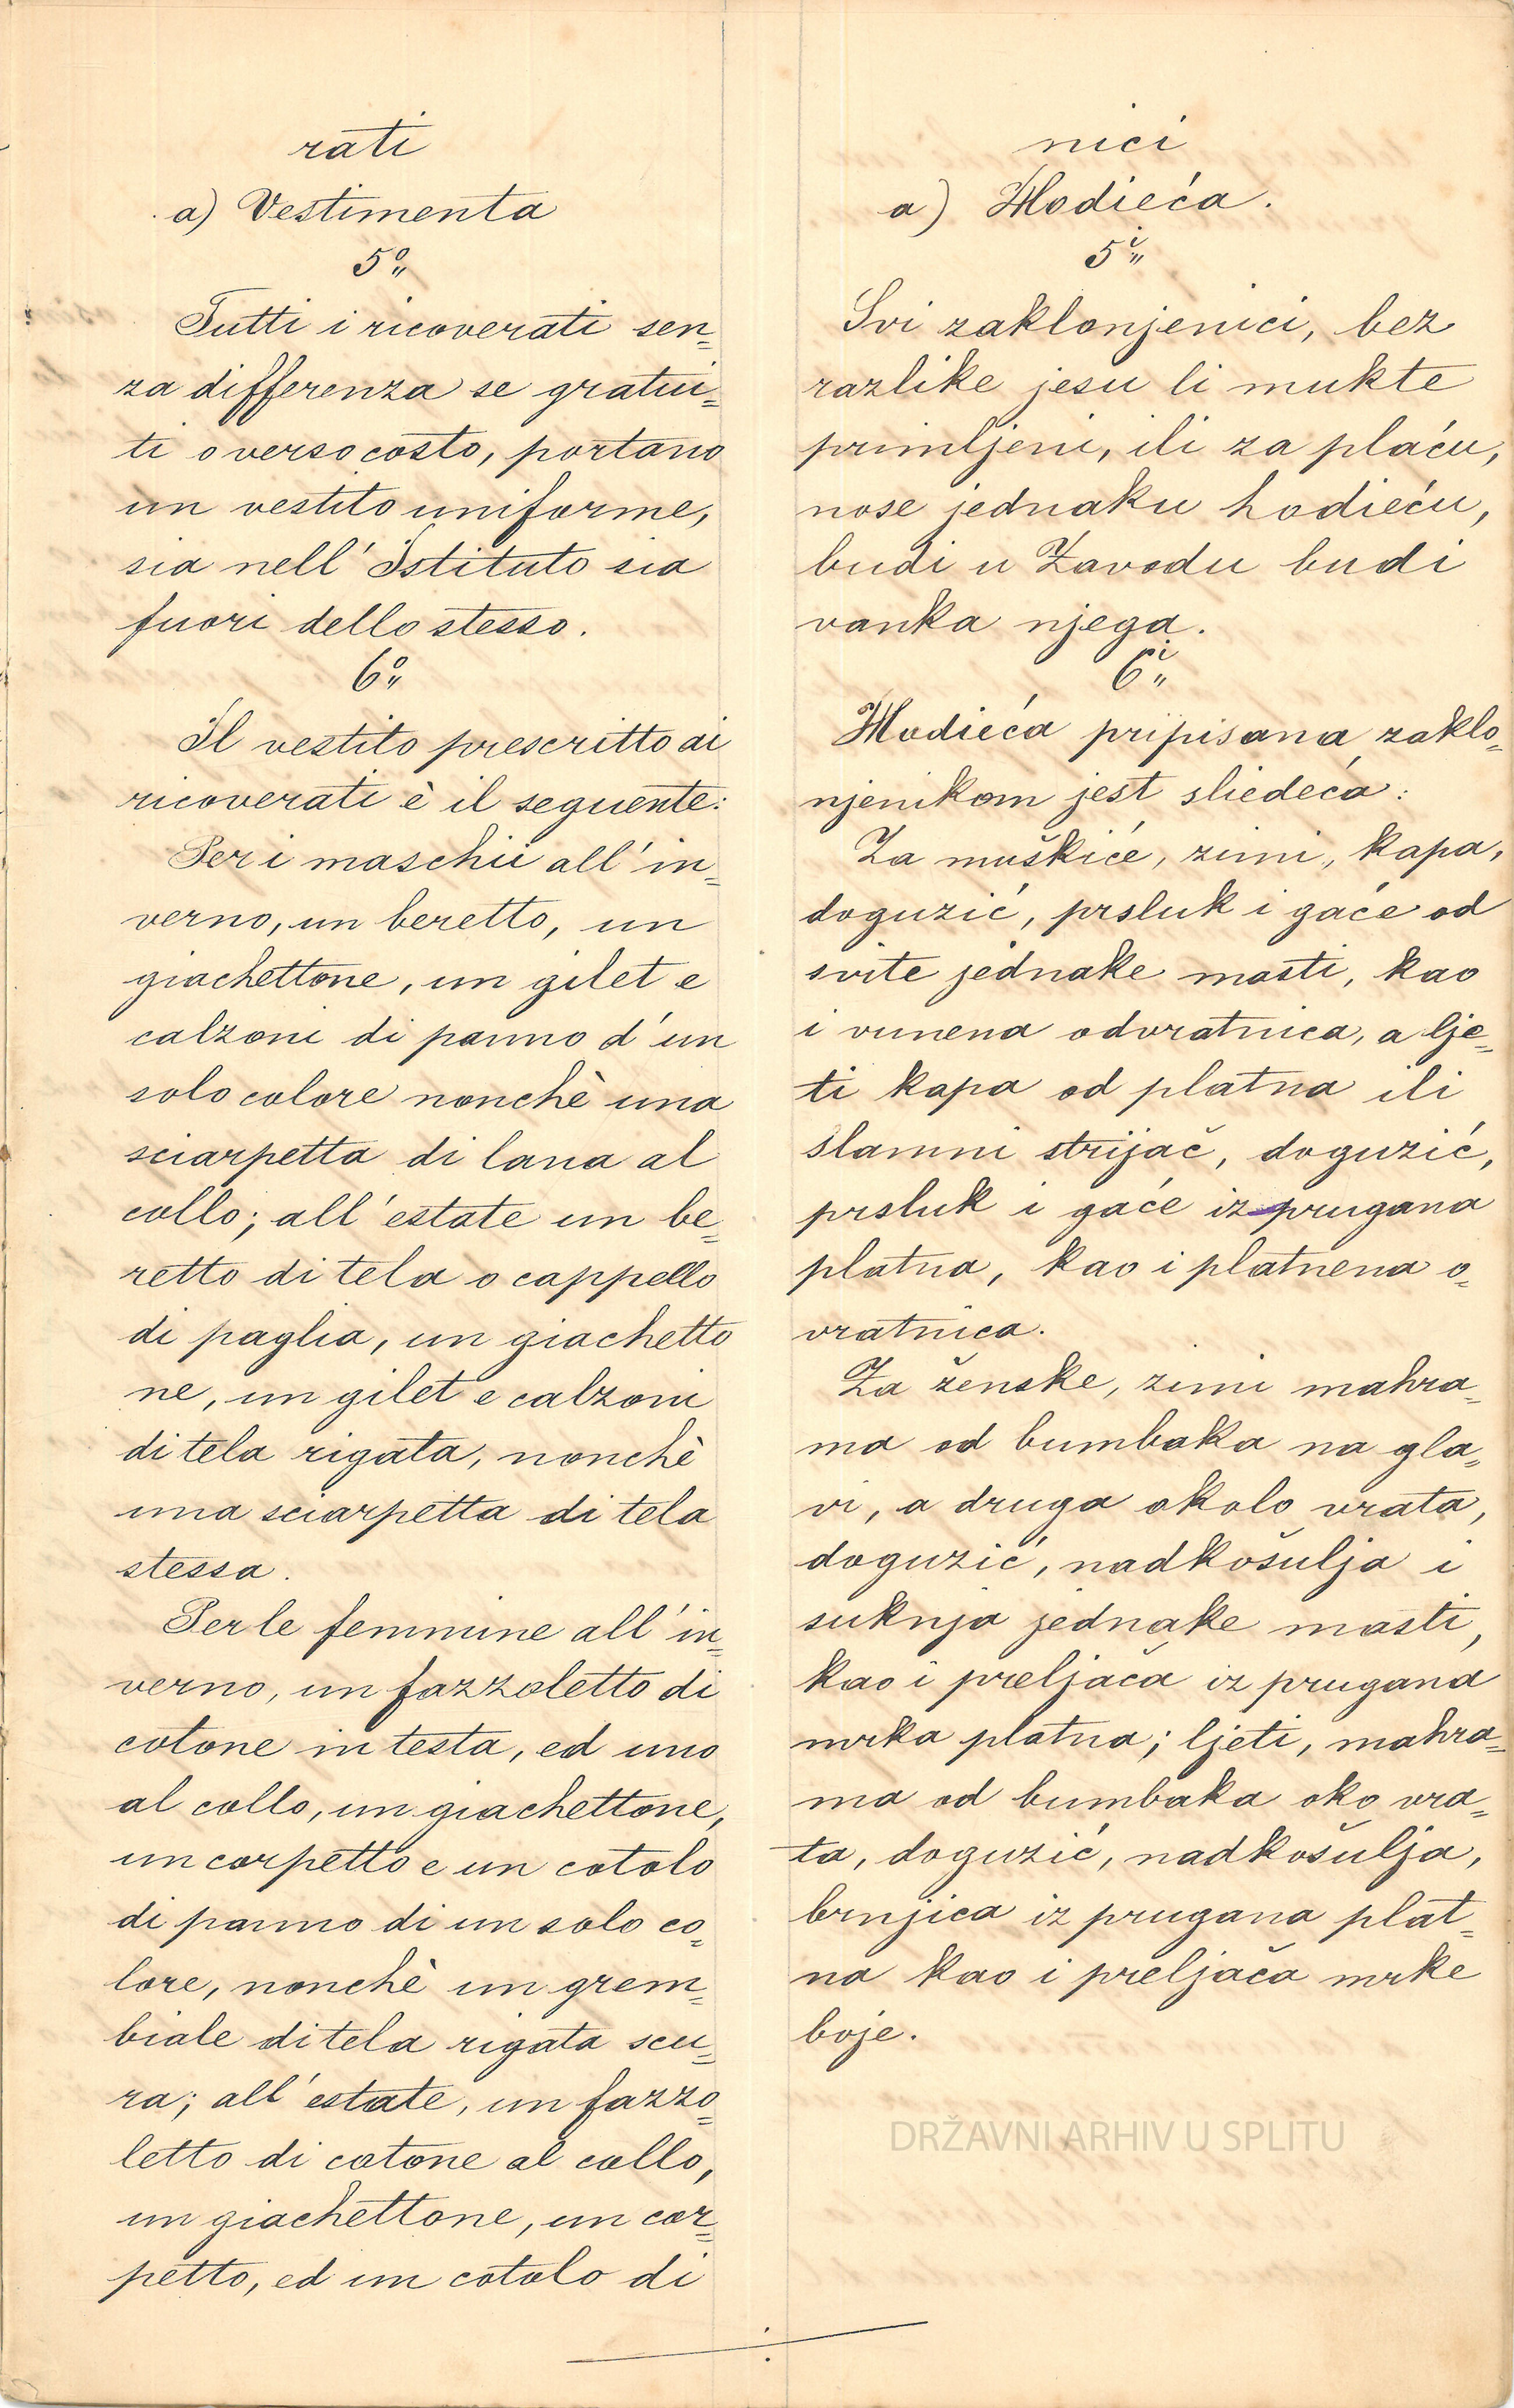 rati
a) Vestimenta
5°„
Tutti i ricoverati sen=
za differenza se gratui=
ti o verso costo, portano
un vestito uniforme,
sia nell' Istituto sia
fuori dello stesso.
6°„
Il vestito prescritto ai
ricoverati è il seguente:
Per i maschii all' in=
verno, un beretto, un
giachettone, un gilet e
calzoni di panno d' un
solo colore nonchè una
sciarpetta di lana al
collo; all' estate un be=
retto di tela o cappello
di paglia, un giachetto
ne, un gilet e calzoni
di tela rigata, nonchè
una sciarpetta di tela
stessa.
Per le femmine all' in=
verno, un fazzoletto di
cotone in testa, ed uno
al collo, un giachettone,
un corpetto e un cotolo
di panno di un solo co=
lore, nonchè un grem=
biale di tela rigata scu=
ra; all' estate, un fazzo=
letto di cotone al collo,
un giachettone, un cor=
petto, ed un cotolo di
nici
a) Hodieća.
5i„
Svi zaklonjenici, bez
razlike jesu li mukte
primljeni, ili za plaću,
nose jednaku hodieću,
budi u Zavodu budi
vanka njega.
6i„
Hodieća pripisana zaklo=
njenikom jest sliedeća:
Za muškiće, zimi, kapa,
doguzić, prsluk i gaće od
svite jednake masti, kao
i vunena odvratnica, a lje=
ti kapa od platna ili
slamni strijač, doguzić,
prsluk i gaće iz prugana
platna, kao i platnena o=
vratnica.
Za ženske, zimi mahra=
ma od bumbaka na gla=
vi, a druga okolo vrata,
doguzić, nadkošulja i
suknja jednake masti,
kao i preljača iz prugana
mrka platna; ljeti, mahra=
ma od bumbaka oko vra=
ta, doguzić, nadkošulja,
brnjica iz prugana plat=
na kao i preljača mrke
boje.
DRŽAVNI ARHIV U SPLITU